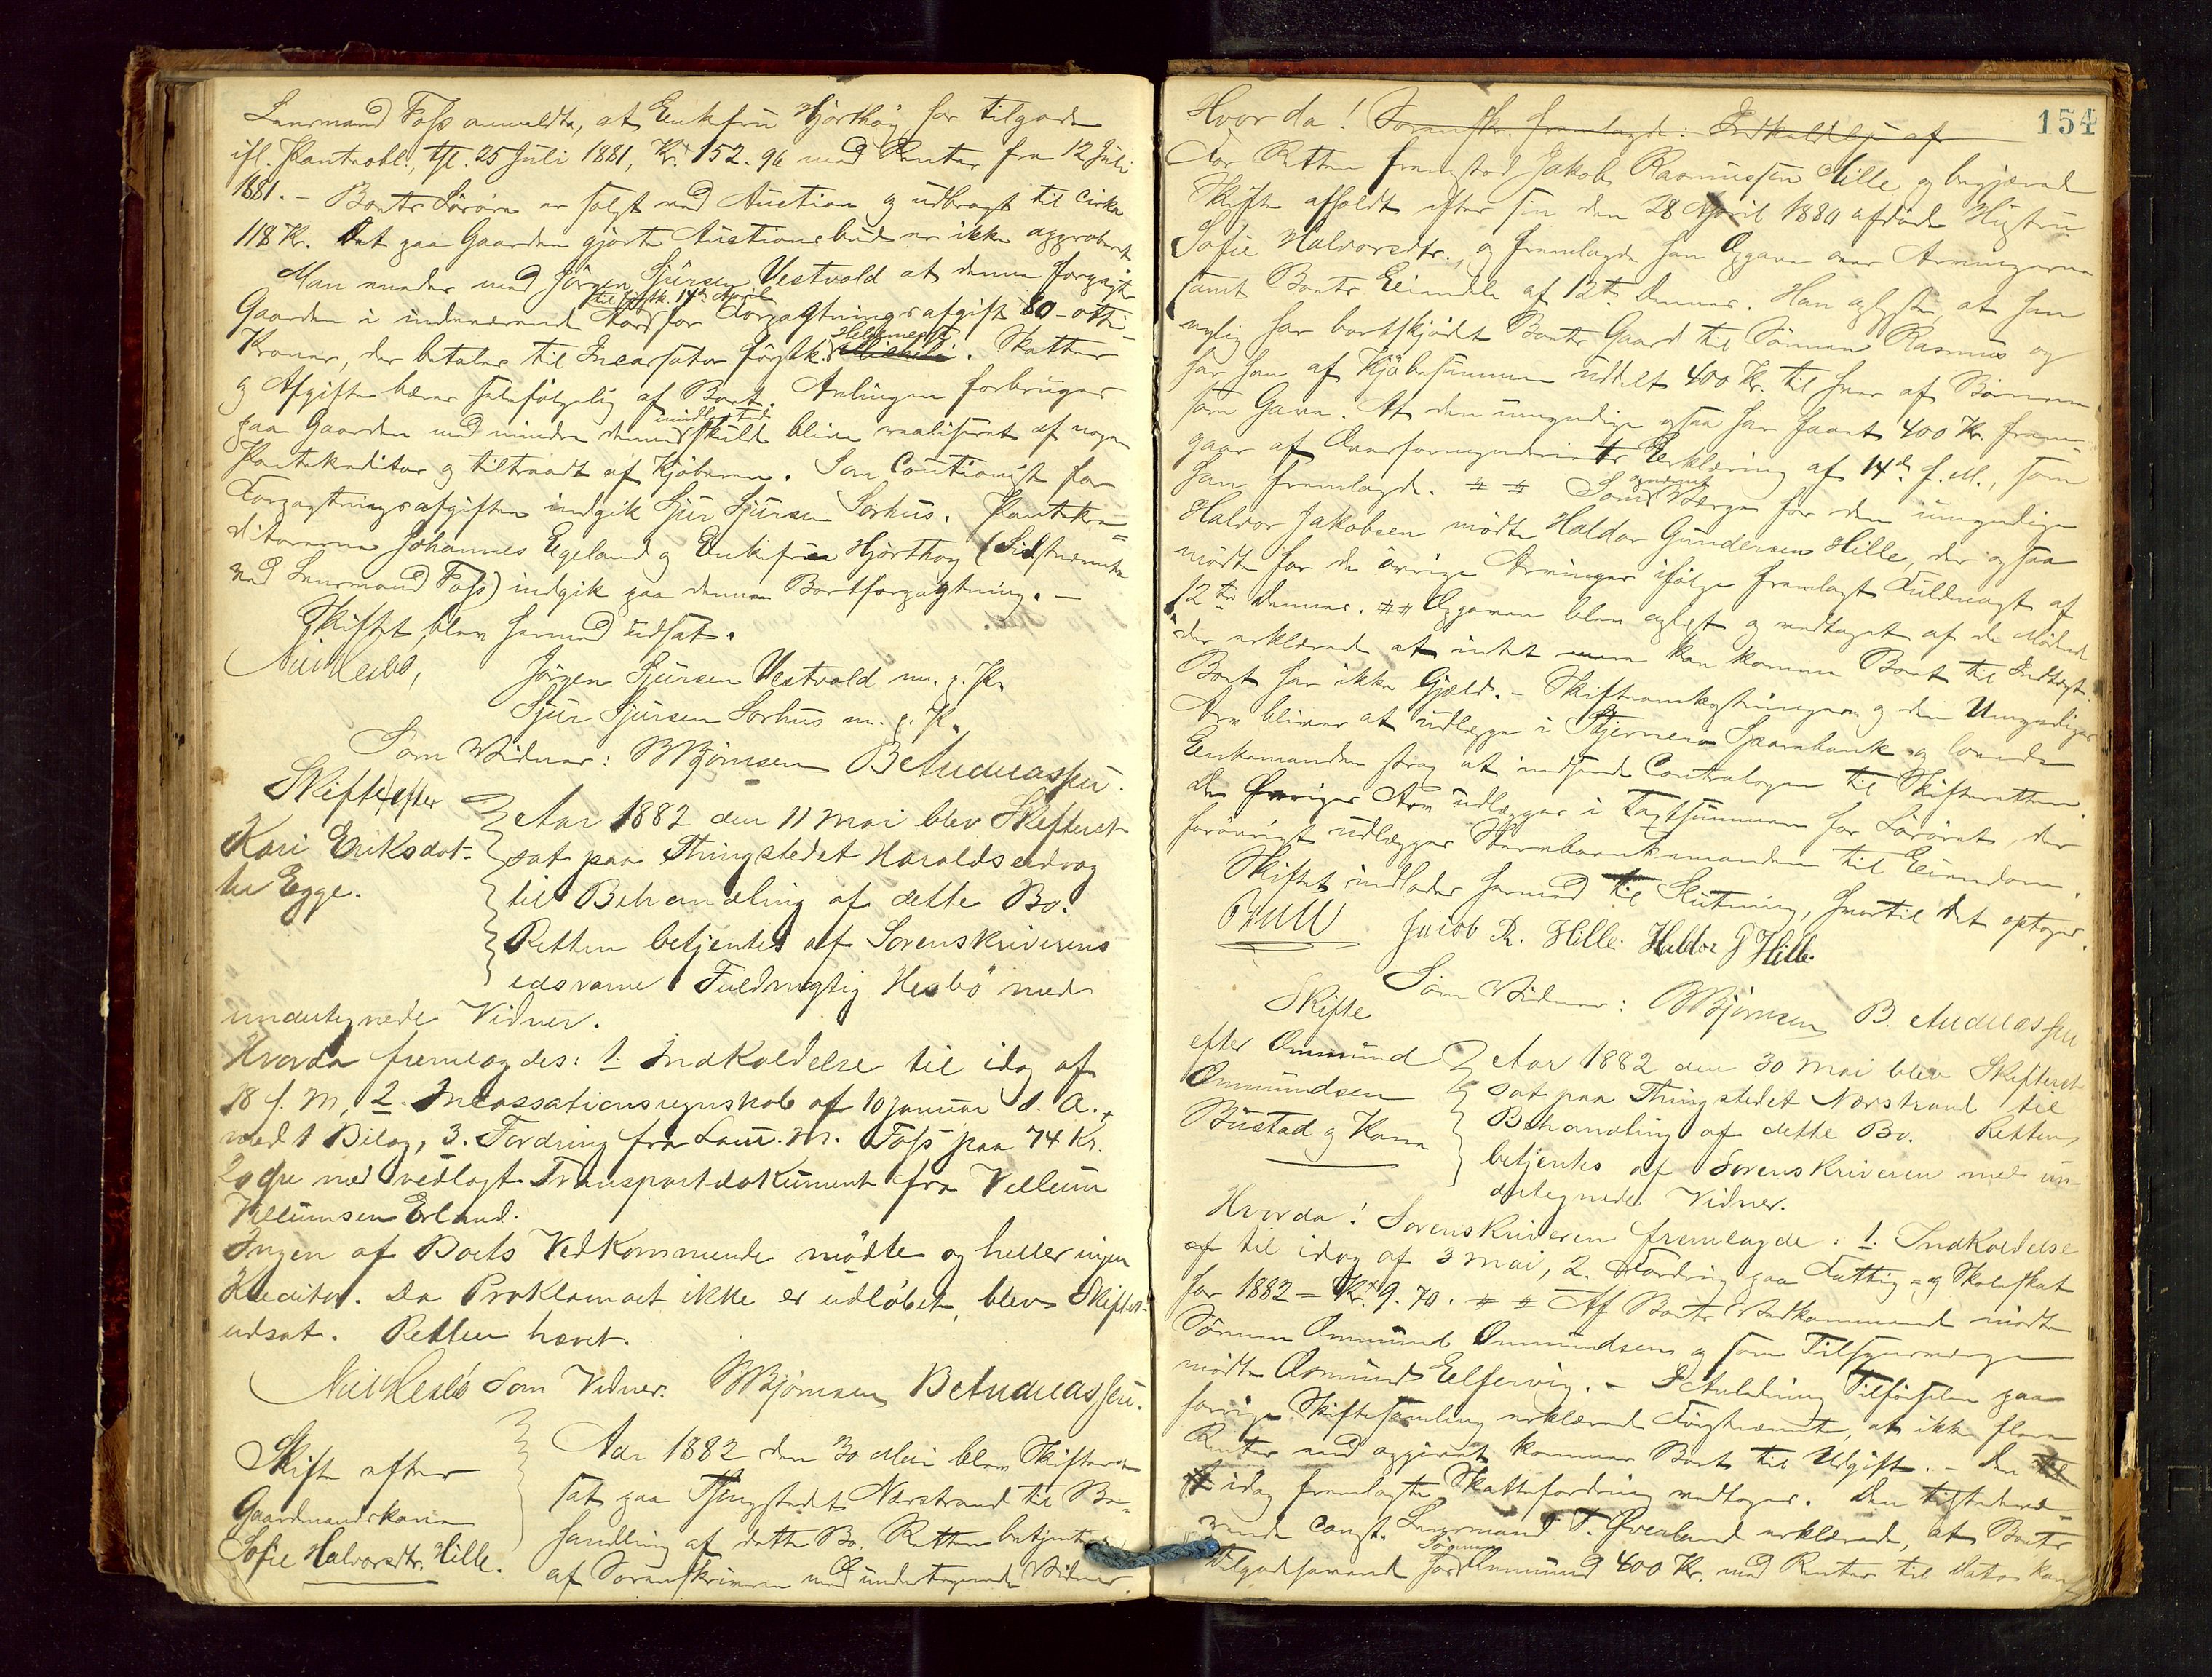 Lensmand Foss anmeldte, at Enkefru Hjorthøy har tilgode
ifl. Panteobl., thl. 25 Juli 1881, Kr. 152.96 med Renter fra 12 Juli
1881. – Boets Løsøre er solgt ved Auction og udbragt til cirka
118 Kr. Det paa Gaarden gjorte Auctionsbud er ikke approberet
Man enedes med Jørgen Sjursen Vestvold at denne forpagter
til förstk. 14de April
Gaarden i indeværende Aar for Forpagtningsafgift 80 – otti
Helgemesse
Kroner, der betales til Incassator förstk. . Skatter
og Afgifter bæres selvfølgelig af Boet. Avlingen forbruges
imidlertid
paa Gaarden med mindre denne skulde blive realiseret af nogen
Pantekreditor og tiltraadt af Kjøberen. Som Cautionist for
Forpagtningsafgiften indgik Sjur Sjursen Sorhus. Pantekre=
ditorerne Johannes Egeland og Enkefru Hjorthøy (Sidstnævnte
ved Lensmand Foss) indgik paa denne Bortforpagtning. –
Skiftet blev hermed udsat.
Jörgen Sjursen Vestvold m. p. P.
Sjur Sjursen Sorhus m. p. P.
Som Vidner: BBjörnsen B Andreassen.
Skifte efter
Kari Eriksdat-
ter Egge.
Aar 1882 den 11 Mai blev Skifteret
sat paa Thingstedet Haraldseidvog
til Behandling af dette Bo.
Retten betjentes af Sorenskriverens
edsvorne Fuldmægtig Hesbö med
undertegnede Vidner.
Hvorda fremlagdes: 1. Indkaldelse til idag af
18 f. M, 2. Incassationsregnskab af 10 Januar d. A.
med 1 Bilag, 3. Fordring fra Lens. M. Foss paa 74 Kr.
20 Øre med vedlagt Transportdokument fra Vellum
Vellumsen Erland.
Ingen af Boets Vedkommende mödte og heller ingen
Kreditor. Da Proklamaet ikke er udlöbet, blev Skiftet
udsat. Retten hævet.
Som Vidner. BBjörnsen B Andreassen.
Skifte efter
Gaardmandskone
Sofie Halvorsdtr. Hille.
Aar 1882 den 30 Mai blev Skifteret
sat paa Thingstedet Nerstrand til Be=
handling af dette Bo. Retten betjentes
af Sorenskriveren med undertegnede Vidner.
154
Hvor da! Sorenskr. fremlagde: Indkaldelse af
For Retten fremstod Jakob Rasmussen Hille og begjærede
Skifte afholdt efter sin den 28 April 1880 afdøde Hustru
Sofie Halvorsdtr., og fremlagde han Opgave over Arvingerne
samt Boets Eiendele af 12te dennes. Han oplyste, at han
nylig har bortskjödet Boets Gaard til Sönnen Rasmus og
har han af Kjöbesummen uddelt 400 Kr. til hver af Börnene
som Gave. At den umyndige ogsaa har faaet 400 Kr. frem-
gaar af Overformynderiets Erklæring af 14de f. M., som
opnævnt
han fremlagde. # # Som Værge for den umyndige
Haldor Jakobsen mödte Haldor Gundersen Hille, der ogsaa
mödte for de övrige Arvinger ifölge fremlagt Fuldmagt af
12te dennes. # # Opgaven blev oplæst og vedtaget af de Mödende
der erklærede at intet mere kan komme Boet til Indtægt.
Boet har ikke Gjæld. – Skifteomkostninger og den Umyndiges
Arv bliver at udlægge i Stjernerø Sparebank og lovede
Enkemanden strax at indsende Contrabogen til Skifteretten
De Øvriges Arv udlægges i Taxtsummen for Løsøret, der
forövrigt udlægges Stervboenkemanden til Eiendom.
Skiftet indlades hermed til Slutning, hvortil det optages.
Bull Jacob R. Hille. Haldor G Hille.
Som Vidner: BBjörnsen B. Andreassen
Skifte
efter Ommund
Ommundsen
Bustad og Kone
Aar 1882 den 30 Mai blev Skifteret
sat paa Thingstedet Nerstrand til
Behandling af dette Bo. Retten
betjentes af Sorenskriveren med un-
dertegnede Vidner.
Hvorda! Sorenskriveren fremlagde: 1. Indkaldelse
af til idag af 3 Mai, 2. Fordring paa Fattig- og Skoleskat
for 1882 = Kr. 9.70. # # Af Boets Vedkommende mödte
Sönnen Ommund Ommundsen og som Tilsynsværge
mödte Osmund Elfervig. – I Anledning Tilförselen paa
forrige Skiftesamling erklærede Förstnævnte, at ikke flere
Renter end opgivet kommer Boet til Udgift. – Den til
idag fremlagte Skattefordring vedtages. Den tilstedevæ-
rende const. Lensmand T. Øverland erklærede, at Boets
Sönnen
Tilgodehavende hos Ommund 400 Kr. med Renter til Dato kan